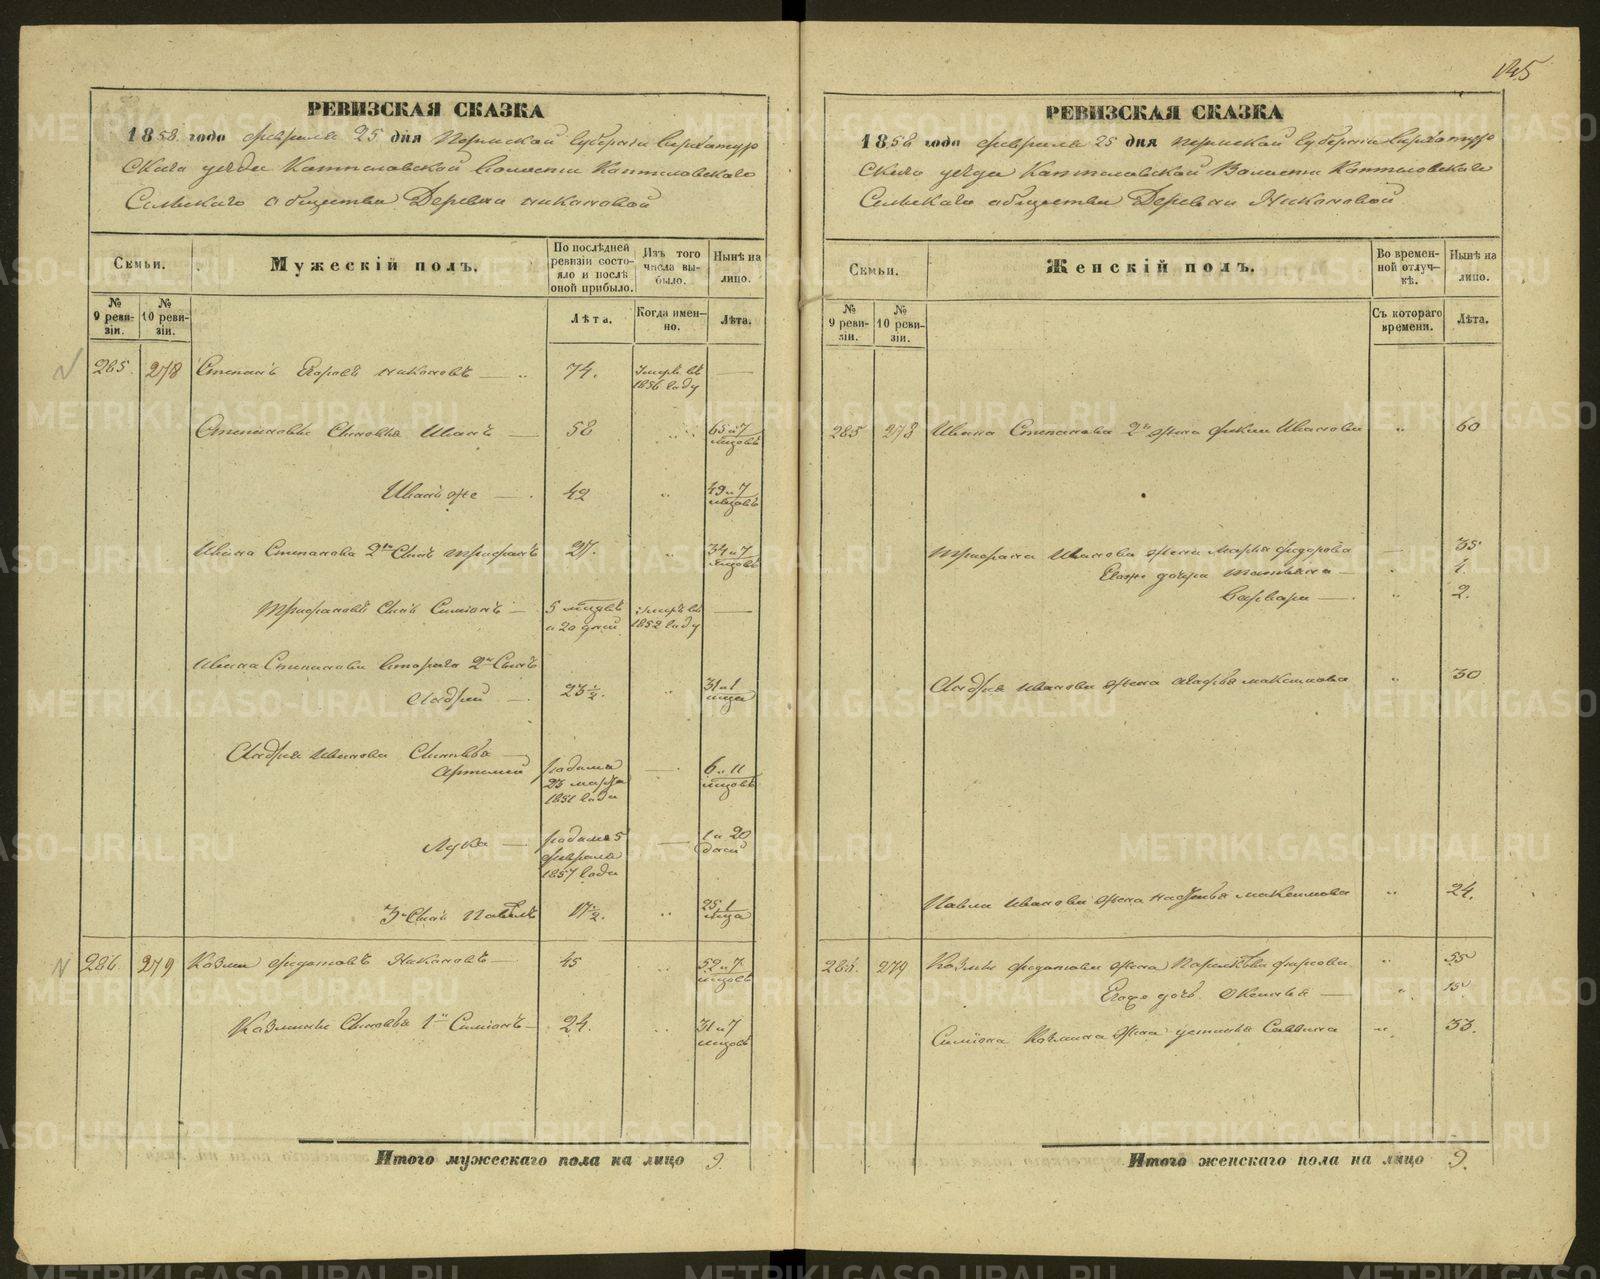 145
РЕВИЗСКАЯ СКАЗКА
1858 года февраля 25 дня Пермской Губернiи Верхотур
скаго уезда Коптеловской Волости Коптеловскаго
Сельскаго общества Деревни Никоновой
Семьи.
Мужескій полъ.
По послѣдней ревизіи состояло и послѣ оной прибыло.
Изъ того числа выбыло.
Нынѣ на лицо.
№ 9 ревизіи.
№ 10 ревизіи.
Лѣта.
Когда именно.
Лѣта.
285. 278 Степанъ Егоровъ Никоновъ 74. Умеръ въ 1856 году
Степановы Сыновья Иванъ 58 65 и 7 мѣсцовъ
Иванъ же 42 49 и 7 мѣсцовъ
Ивана Степанова 2го Сынъ Трифанъ 27. 34 и 7 мѣсцовъ
Трифановъ Сынъ Симіонъ 5 мѣсцовъ и 20 дней умеръ въ 1852 году
Ивана Степанова втораго 2й Сынъ
Андрей 23 ½. 31 и 1 мѣсца
Андрея Иванова Сыновья
Артемий родился 23 марта 1851 года 6 и 11 мѣсцовъ
Лука родился 5 февраля 1857 года 1 и 20 дней
3й Сынъ Павелъ 17 ½. 25 1 мѣсца
286. 279 Козма Федотовъ Никоновъ 45 52 и 7 мѣсцовъ
Козмины Сыновья 1й Симіонъ 24. 31 и 7 мѣсцовъ
Итого мужескаго пола на лицо 9.
РЕВИЗСКАЯ СКАЗКА
1858 года февраля 25 дня Пермской Губернiи Верхотур
скаго уезда Коптеловской Волости Коптеловскаго
Сельскаго общества Деревни Никоновой
Семьи.
Женскій полъ.
Во временной отлучкѣ.
Нынѣ на лицо.
№ 9 ревизіи.
№ 10 ревизіи.
Съ котораго времени.
Лѣта.
285 278 Ивана Степанова 2го жена Иванова 60
Трифана Иванова жена Марья Федорова 35
Егоже дочери Татьяна 4.
Варвара 2.
Андрея Иванова жена Максимова 30
Павла Иванова жена Настасья Максимова 24.
286. 279 Козмы Федотова жена Парасковья 55
Егоже дочь Оксинья 15
Симіона Козмина жена Устинья Саввина 33.
Итого женскаго пола на лицо 9.
METRIKI.GASO-URAL.RU